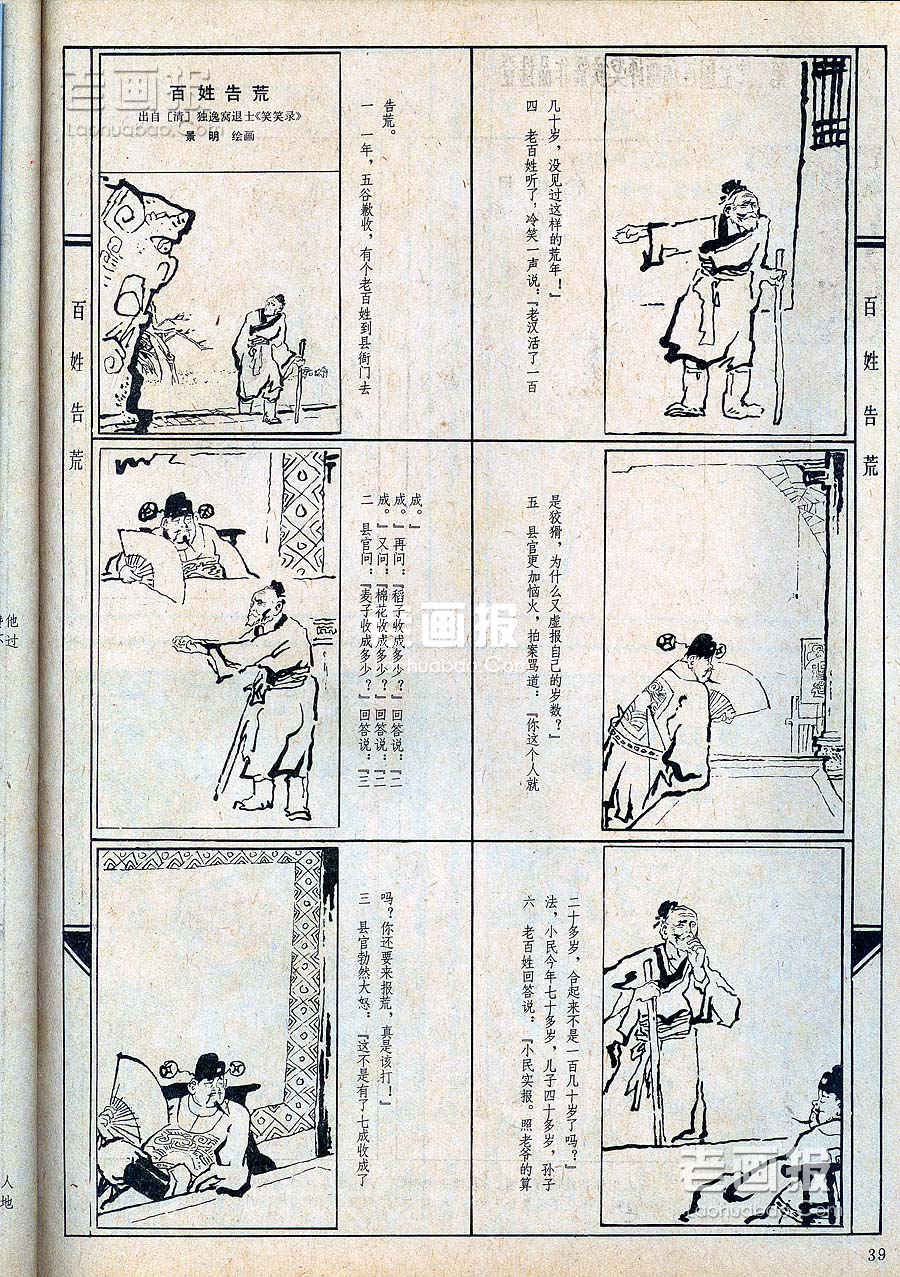 百姓告荒
出自［清］独逸窝退士《笑笑录》
景明 绘画
一 一年，五谷歉收，有个老百姓到县衙门去
告荒。
二 县官问：『麦子收成多少？』回答说：『三
成。』又问：『棉花收成多少？』回答说：『二
成。』再问：『稻子收成多少？』回答说：『二
成。』
三 县官勃然大怒：『这不是有了七成收成了
吗？你还要来报荒，真是该打！』
四 老百姓听了，冷笑一声说：『老汉活了一百
几十岁，没见过这样的荒年！』
五 县官更加恼火，拍案骂道：『你这个人就
是狡猾，为什么又虚报自己的岁数？』
六 老百姓回答说：『小民实报。照老爷的算
法，小民今年七十多岁，儿子四十多岁，孙子
二十多岁，合起来不是一百几十岁了吗？』
百姓告荒
百姓告荒
39
老画报
Laohuabao.Com
老画报
Laohuabao.Com
老画报
Laohuabao.Com
他
过
人
地